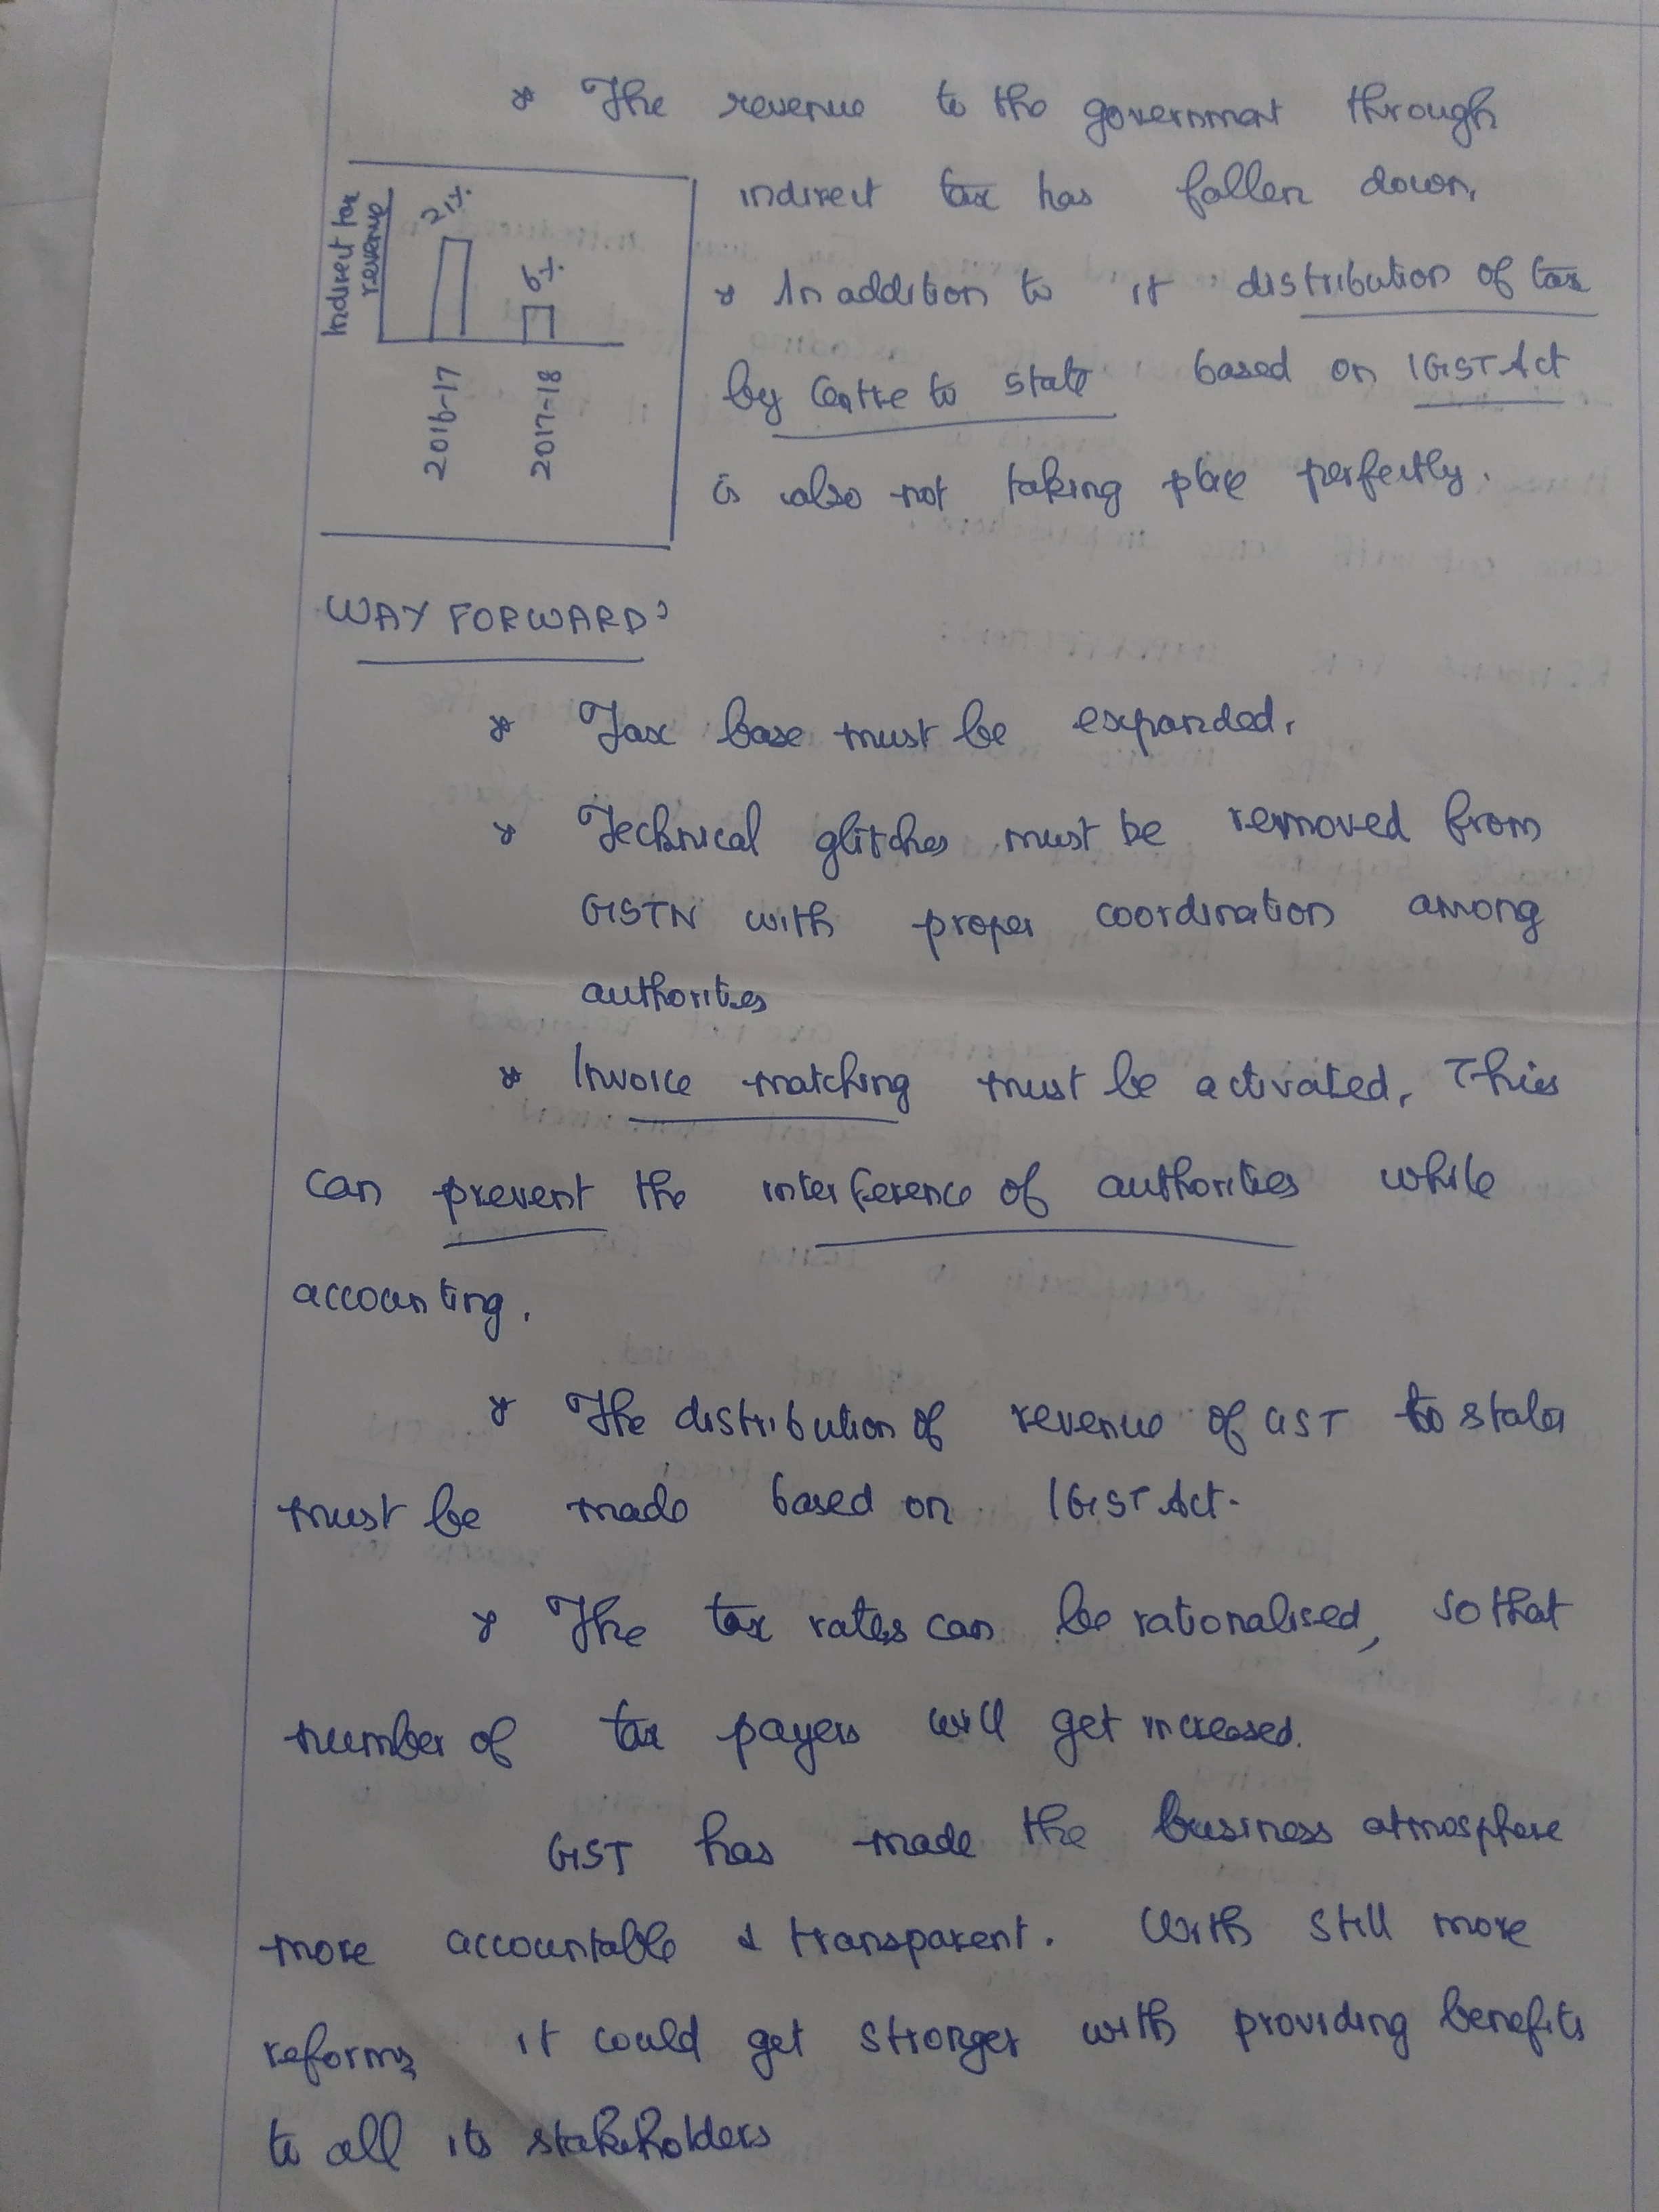 * The revenue to the government through
indirect tax has fallen down.
Indirect tax
revenue
21%
6%
2016-17
2017-18
* In addition to it distribution of tax
by Centre to state based on IGST Act
is also not taking place perfectly.
WAY FORWARD:
* Tax base must be expanded.
* Technical glitches must be removed from
GSTN with proper coordination among
authorities
* Invoice matching must be activated, This
can prevent the interference of authorities while
accounting.
* The distribution of revenue of GST to states
must be made based on IGST Act.
* The tax rates can be rationalised, so that
number of tax payers will get increased.
GST has made the business atmosphere
more accountable & transparent. With still more
reforms, it could get stronger with providing benefits
to all its stakeholders